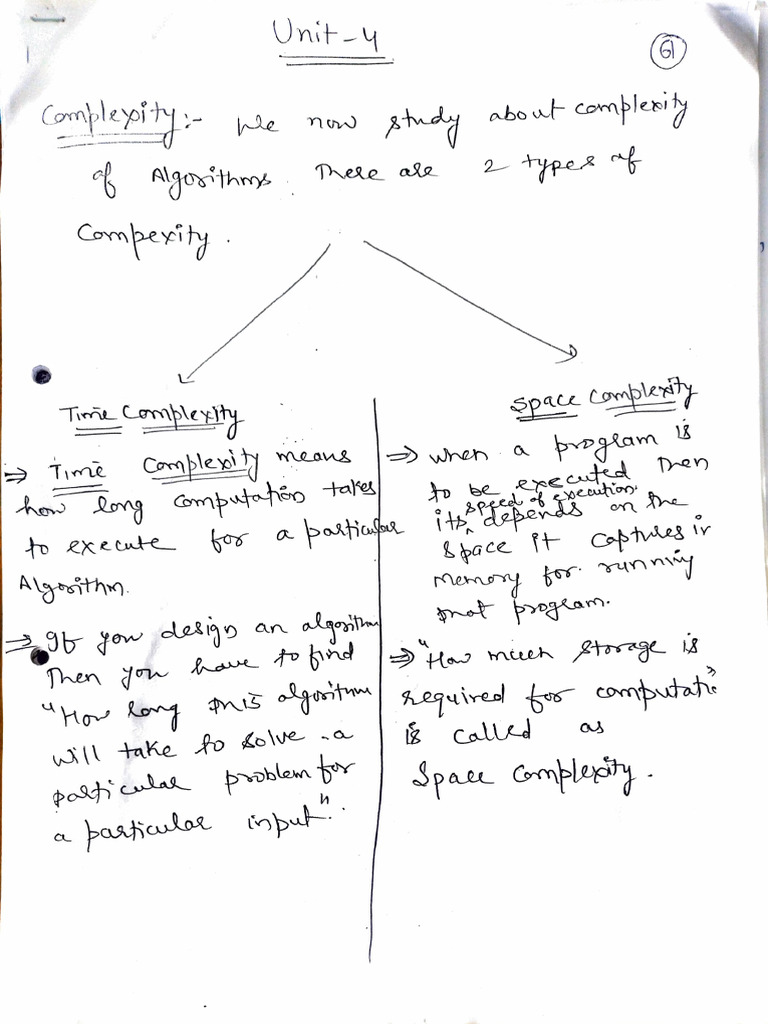 Unit-4
61
Complexity:- We now study about complexity
of Algorithms. There are 2 types of
Compexity.
Time Complexity
⇒ Time Complexity means
how long computation takes
to execute for a particular
Algorithm.
⇒ If you design an algorithm
Then you have to find
"How long this algorithm
will take to solve a
particular problem for
a particular input".
Space Complexity
⇒ when a program is
to be executed then
its speed of execution depends on the
space it captures in
memory for running
that program.
⇒ "How much storage is
required for computatio"
is called as
Space Complexity.